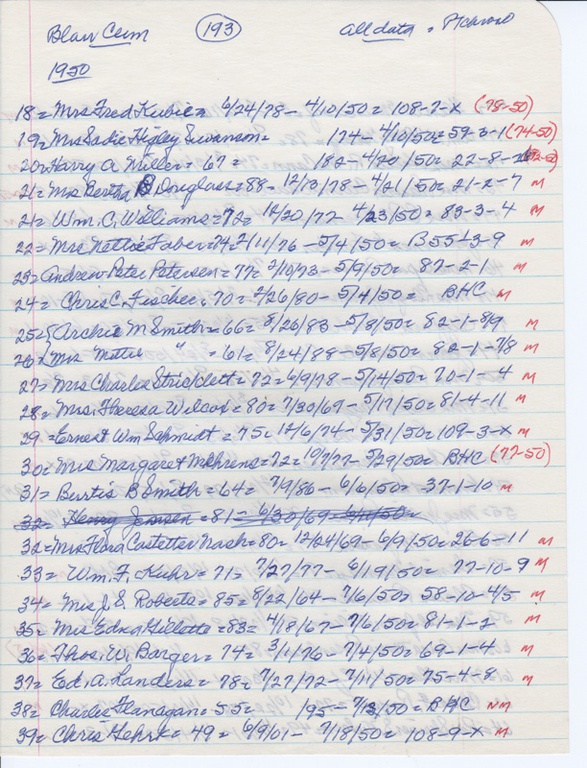 Blair Cem (193) all data =
1950
18= Mrs Fred Kubie= 6/24/78- 4/10/50= 108-7-x (78-50)
19= Mrs Sadie Higley Swanson= 174- 4/10/50= 59-3-1 (74-50)
20= Harry A Miller= 67= 182- 4/20/50= 22-8-
21= Mrs Bertha B Douglass= 88= 12/13/78- 4/21/50= 21-2-7 M
21= Wm. C. Williams= 72= 12/20/77- 4/23/50= 83-3-4 M
22= Mrs Nettie Faber= 74= 2/11/76- 5/4/50= B55½-3-9 M
23= Andrew Peter Petersen= 77= 2/10/73- 5/9/50= 87-2-1 M
24= Chris C. Fischer= 70= 2/26/80- 5/4/50= BHC M
25= Archie M Smith= 66= 8/26/83- 5/8/50= 82-1-8/9 M
26= Mrs Mattie " = 61= 8/24/88- 5/8/50= 82-1-7/8 M
27= Mrs Charles Stricklett= 72= 6/9/78- 5/14/50= 70-1-4 M
28= Mrs. Theresa Wilcox= 80= 7/30/69- 5/17/50= 81-4-11 M
29= Ernest Wm Schmidt= 75= 12/6/74- 5/31/50= 109-3-x M
30= Mrs Margaret Mehrens= 72= 10/7/77- 5/29/50= BHC (77-50)
31= Bertis B Smith= 64= 7/9/86- 6/6/50= 37-1-10 M
32= Henry Jensen= 81- 6/30/69-
32= Mrs Flora Castetter Nash= 80= 12/24/69- 6/9/50= 26-6-11 M
33= Wm. F. Kuhr= 71= 7/27/77- 6/19/50= 77-10-9 M
34= Mrs J. S. Roberts= 85= 8/22/64- 7/6/50= 58-10-4/5 M
35= Mrs Edna Gillette= 83= 4/18/67- 7/6/50= 81-1-2 M
36= Thos. W. Barger= 74= 3/1/76- 7/4/50= 69-1-4 M
37= Ed. A. Landers= 78= 7/27/72- 7/11/50= 75-4-8 M
38= Charlie Flanagan= 55= 195- 7/13/50= BHC NM
39= Chris Gehrt= 49= 6/9/01- 7/18/50= 108-9-x M